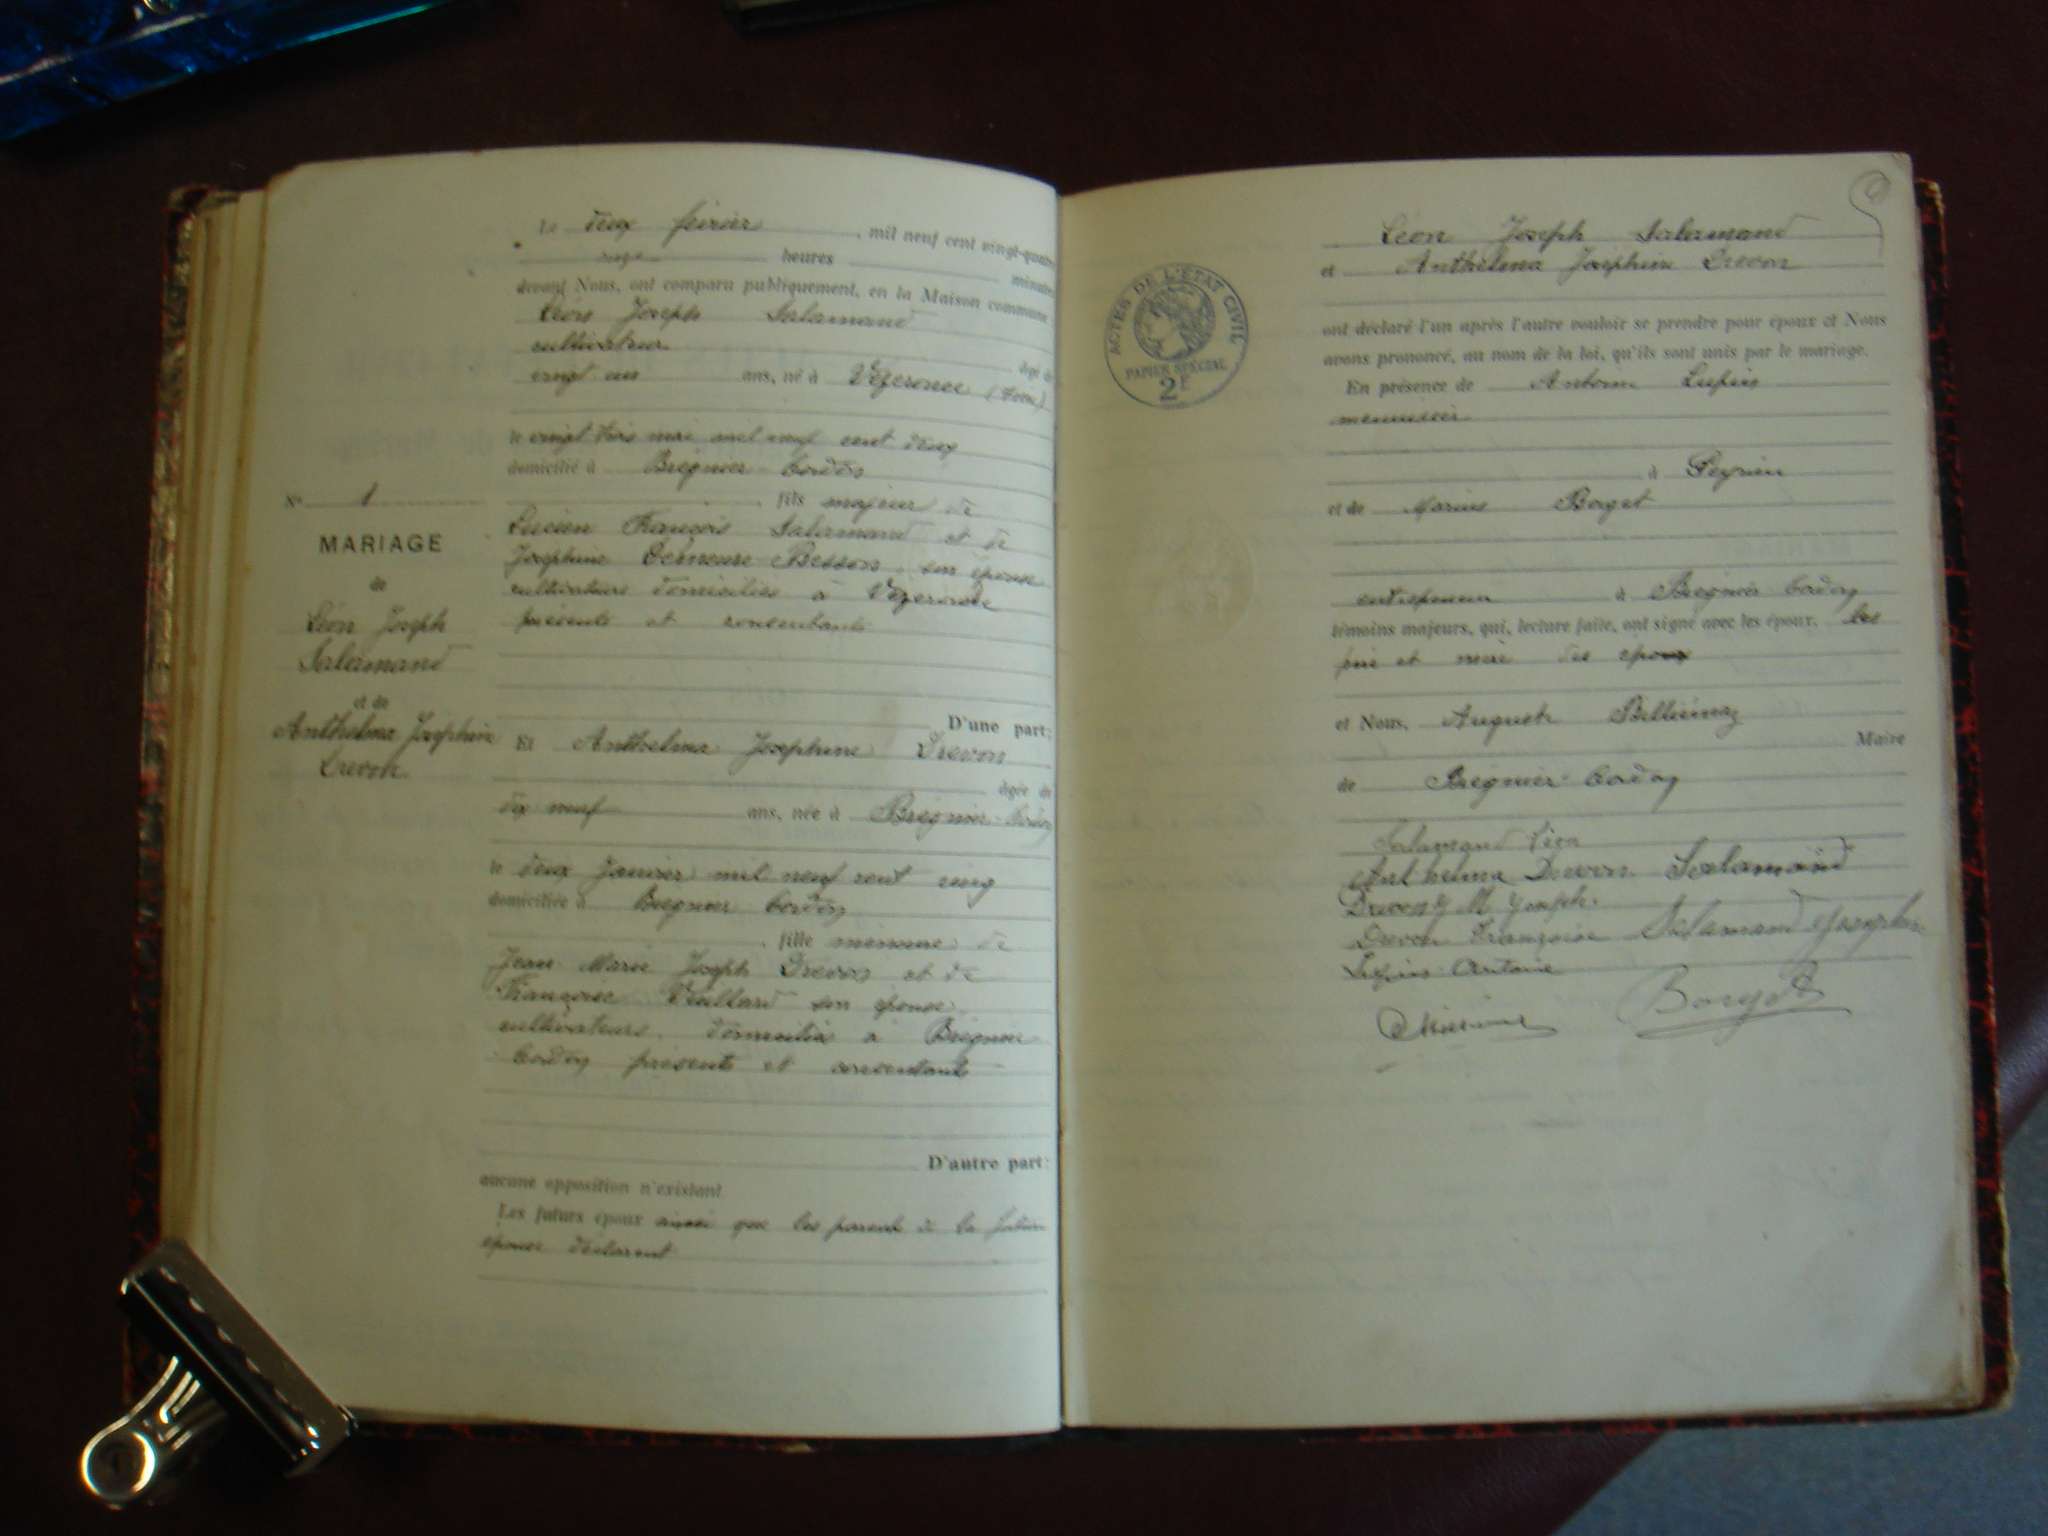 N° 1
MARIAGE
de
Léon Joseph
Salamand
et de
Anthelma Josephine
Drevon
Le deux février, mil neuf cent vingt-quatre
onze heures minutes
devant Nous, ont comparu publiquement, en la Maison commune:
Léon Joseph Salamand
cultivateur
âgé de
vingt un ans, né à Vézeronce (Isère)
le vingt trois mai mil neuf cent deux
domicilié à Bregnier Cordon
, fils majeur de
Lucien François Salamand et de
Josephine Demeure Besson, son épouse
cultivateurs domiciliés à Vézeronce
présents et consentants
D'une part;
Et Anthelma Josephine Drevon
âgée de
dix neuf ans, née à Bregnier-Cordon
le deux Janvier mil neuf cent cinq
domiciliée à Bregnier Cordon
, fille mineure de
Jean Marie Joseph Drevon et de
Françoise Veullard son épouse
cultivateurs, domiciliés à Bregnier
Cordon présents et consentants
D'autre part:
aucune opposition n'existant
Les futurs époux ainsi que les parents de la future
épouse déclarent
Léon Joseph Salamand
et Anthelma Josephine Drevon
ACTES DE L'ÉTAT CIVIL
PAPIER SPÉCIAL
2F
ont déclaré l'un après l'autre vouloir se prendre pour époux et Nous
avons prononcé, au nom de la loi, qu'ils sont unis par le mariage.
En présence de Antoine Lupin
menuisier
à Peyrieu
et de Marius Borget
entrepreneur à Bregnier-Cordon
témoins majeurs, qui, lecture faite, ont signé avec les époux, les
père et mère des époux
et Nous, Auguste
Maire
de Bregnier-Cordon
Salamand Léon
Anthelma Drevon Salamand
Drevon J M Joseph.
Drevon Françoise Salamand Josephine
Lupin Antoine
Borget